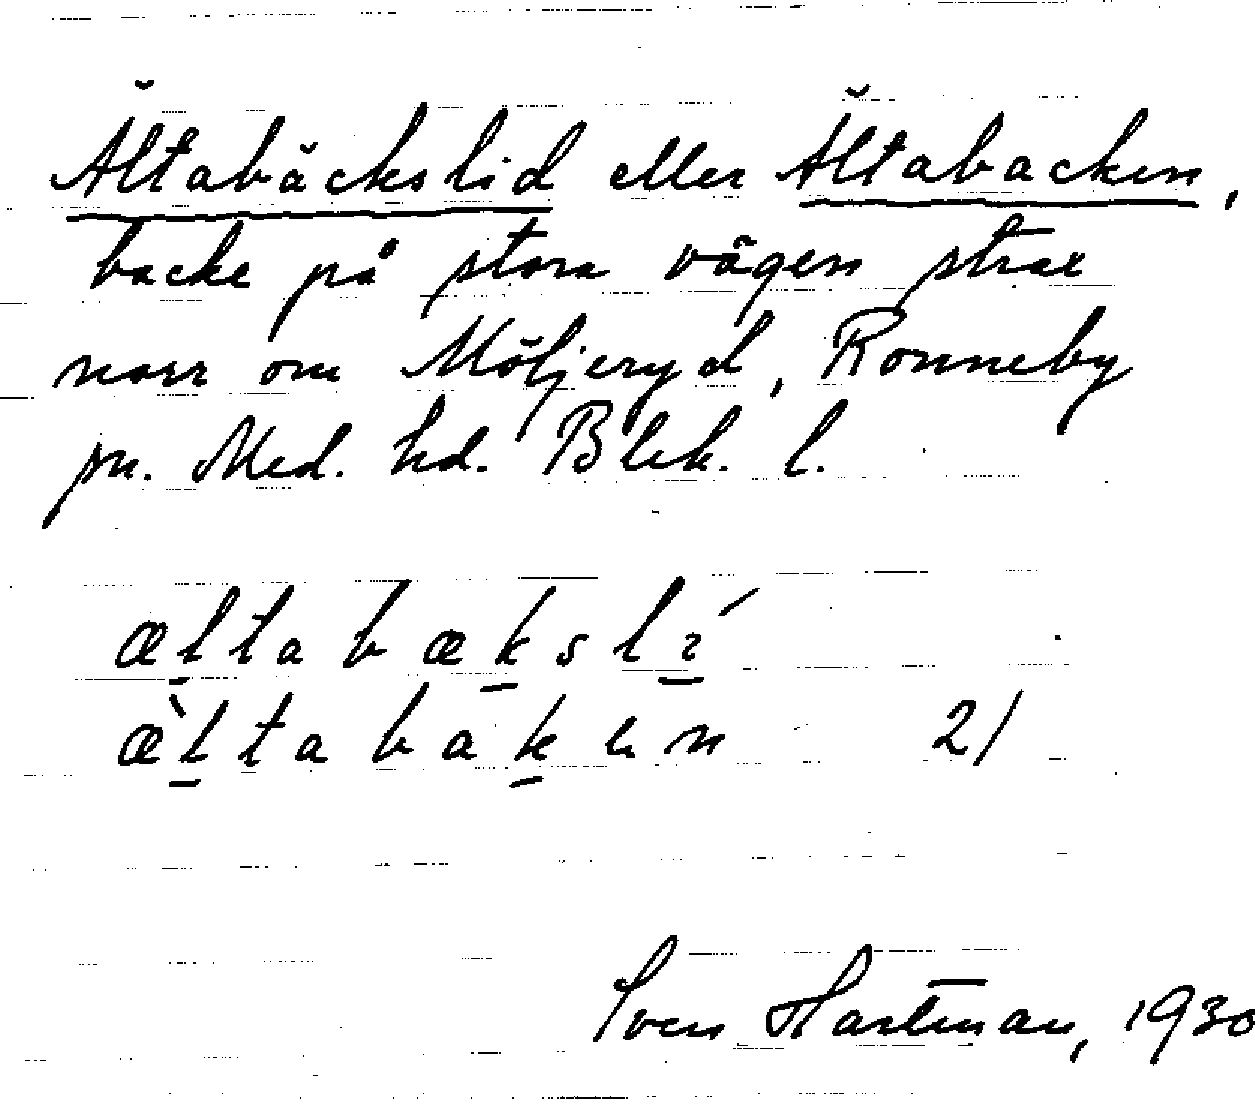 Ältabäckslid eller Ältabacken,
backe på stora vägen strax
norr om Möljeryd, Ronneby
sn. Med. hd. Blek. l.
æltabækslí
æ̀ltabakən 2/
Sven Hartman, 1930